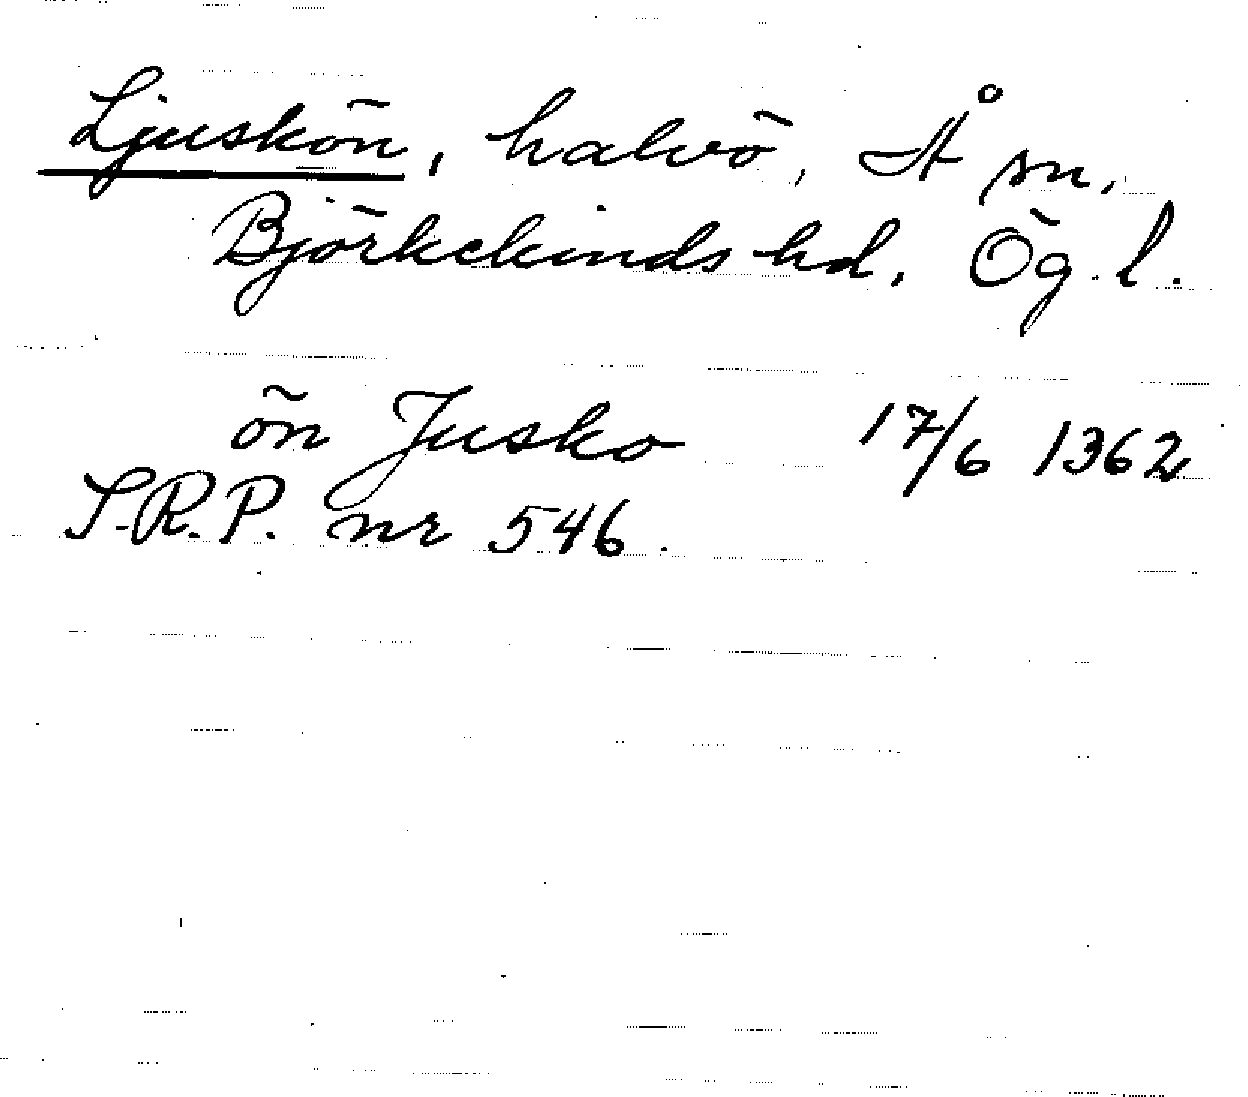 Ljuskön, halvö, Å sn.
Björkekinds hd, Ög. l.
ön Jusko 17/6 1362
S.R.P. nr 546.